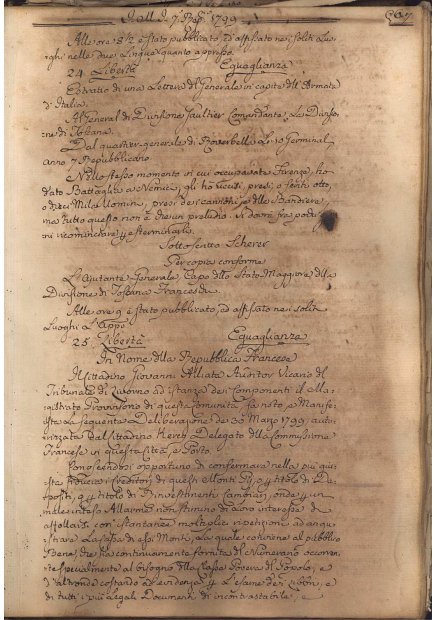 Alle ore 8 1/2 è stato pubblicato, ed affissato nei soliti Luo-
ghi nelle due Lingue quanto appresso
24. Libertà Eguaglianza
Estratto di una Lettera del Generale in capite dell'Armata
d'Italia.
Al General di Divisione Gaultier Comandante La Divisio-
ne di Toscana.
Dal quartier-generale di Roverbella Germinal
anno 7 Repubblicano
Nello stesso momento in cui occupavate Firenze, ho
dato Battaglia a Nemici, gli ho uccisi, presi, o feriti otto,
o dieci Mila Uomini, presi dei cannoni, e delle Bandiere,
ma tutto questo non è che un preludio. Si dovrà fra poch
ni ricominciare
Sottoscritto Scherer
Per copia conforme
L'Ajutante-Generale, Capo dello Stato Maggiore della
Divisione di Toscana
Alle ore 9 è stato pubblicato, ed affissato nei soliti
Luoghi
25. Libertà Eguaglianza
In Nome della Repubblica Francese
Il Cittadino Giovanni Alliata Auditor Vicario del
Tribunale di Livorno ad istanza dei Componenti il Ma-
gistrato Provvisorio di questa Comunità, fa noto, e Manife-
sto la seguente Deliberazione de 30 Marzo 1799. auto-
rizzata dal Cittadino Delegato della Commissione
Francese in questa Città, e Porto.
Conoscendosi opportuno di confermare nella più giu-
sta fiducia i Creditori di questi Monti Pii, o a titolo di De-
positi, o a titolo di Rinvestimenti Cambiari, onde
male inteso Allarme
affollarsi con istantanee moltiplici repetizioni ad angu-
stiare La Cassa di essi Monti, La quale conviene al pubblico
Bene, che sia continuamente fornita di Numerario occorren-
te specialmente al bisogno della Classe Povera del Popolo, e
d'altronde costando ad evidenza L'esame dei Libri, e
di tutti i più legali Documenti di incontrastabile, e